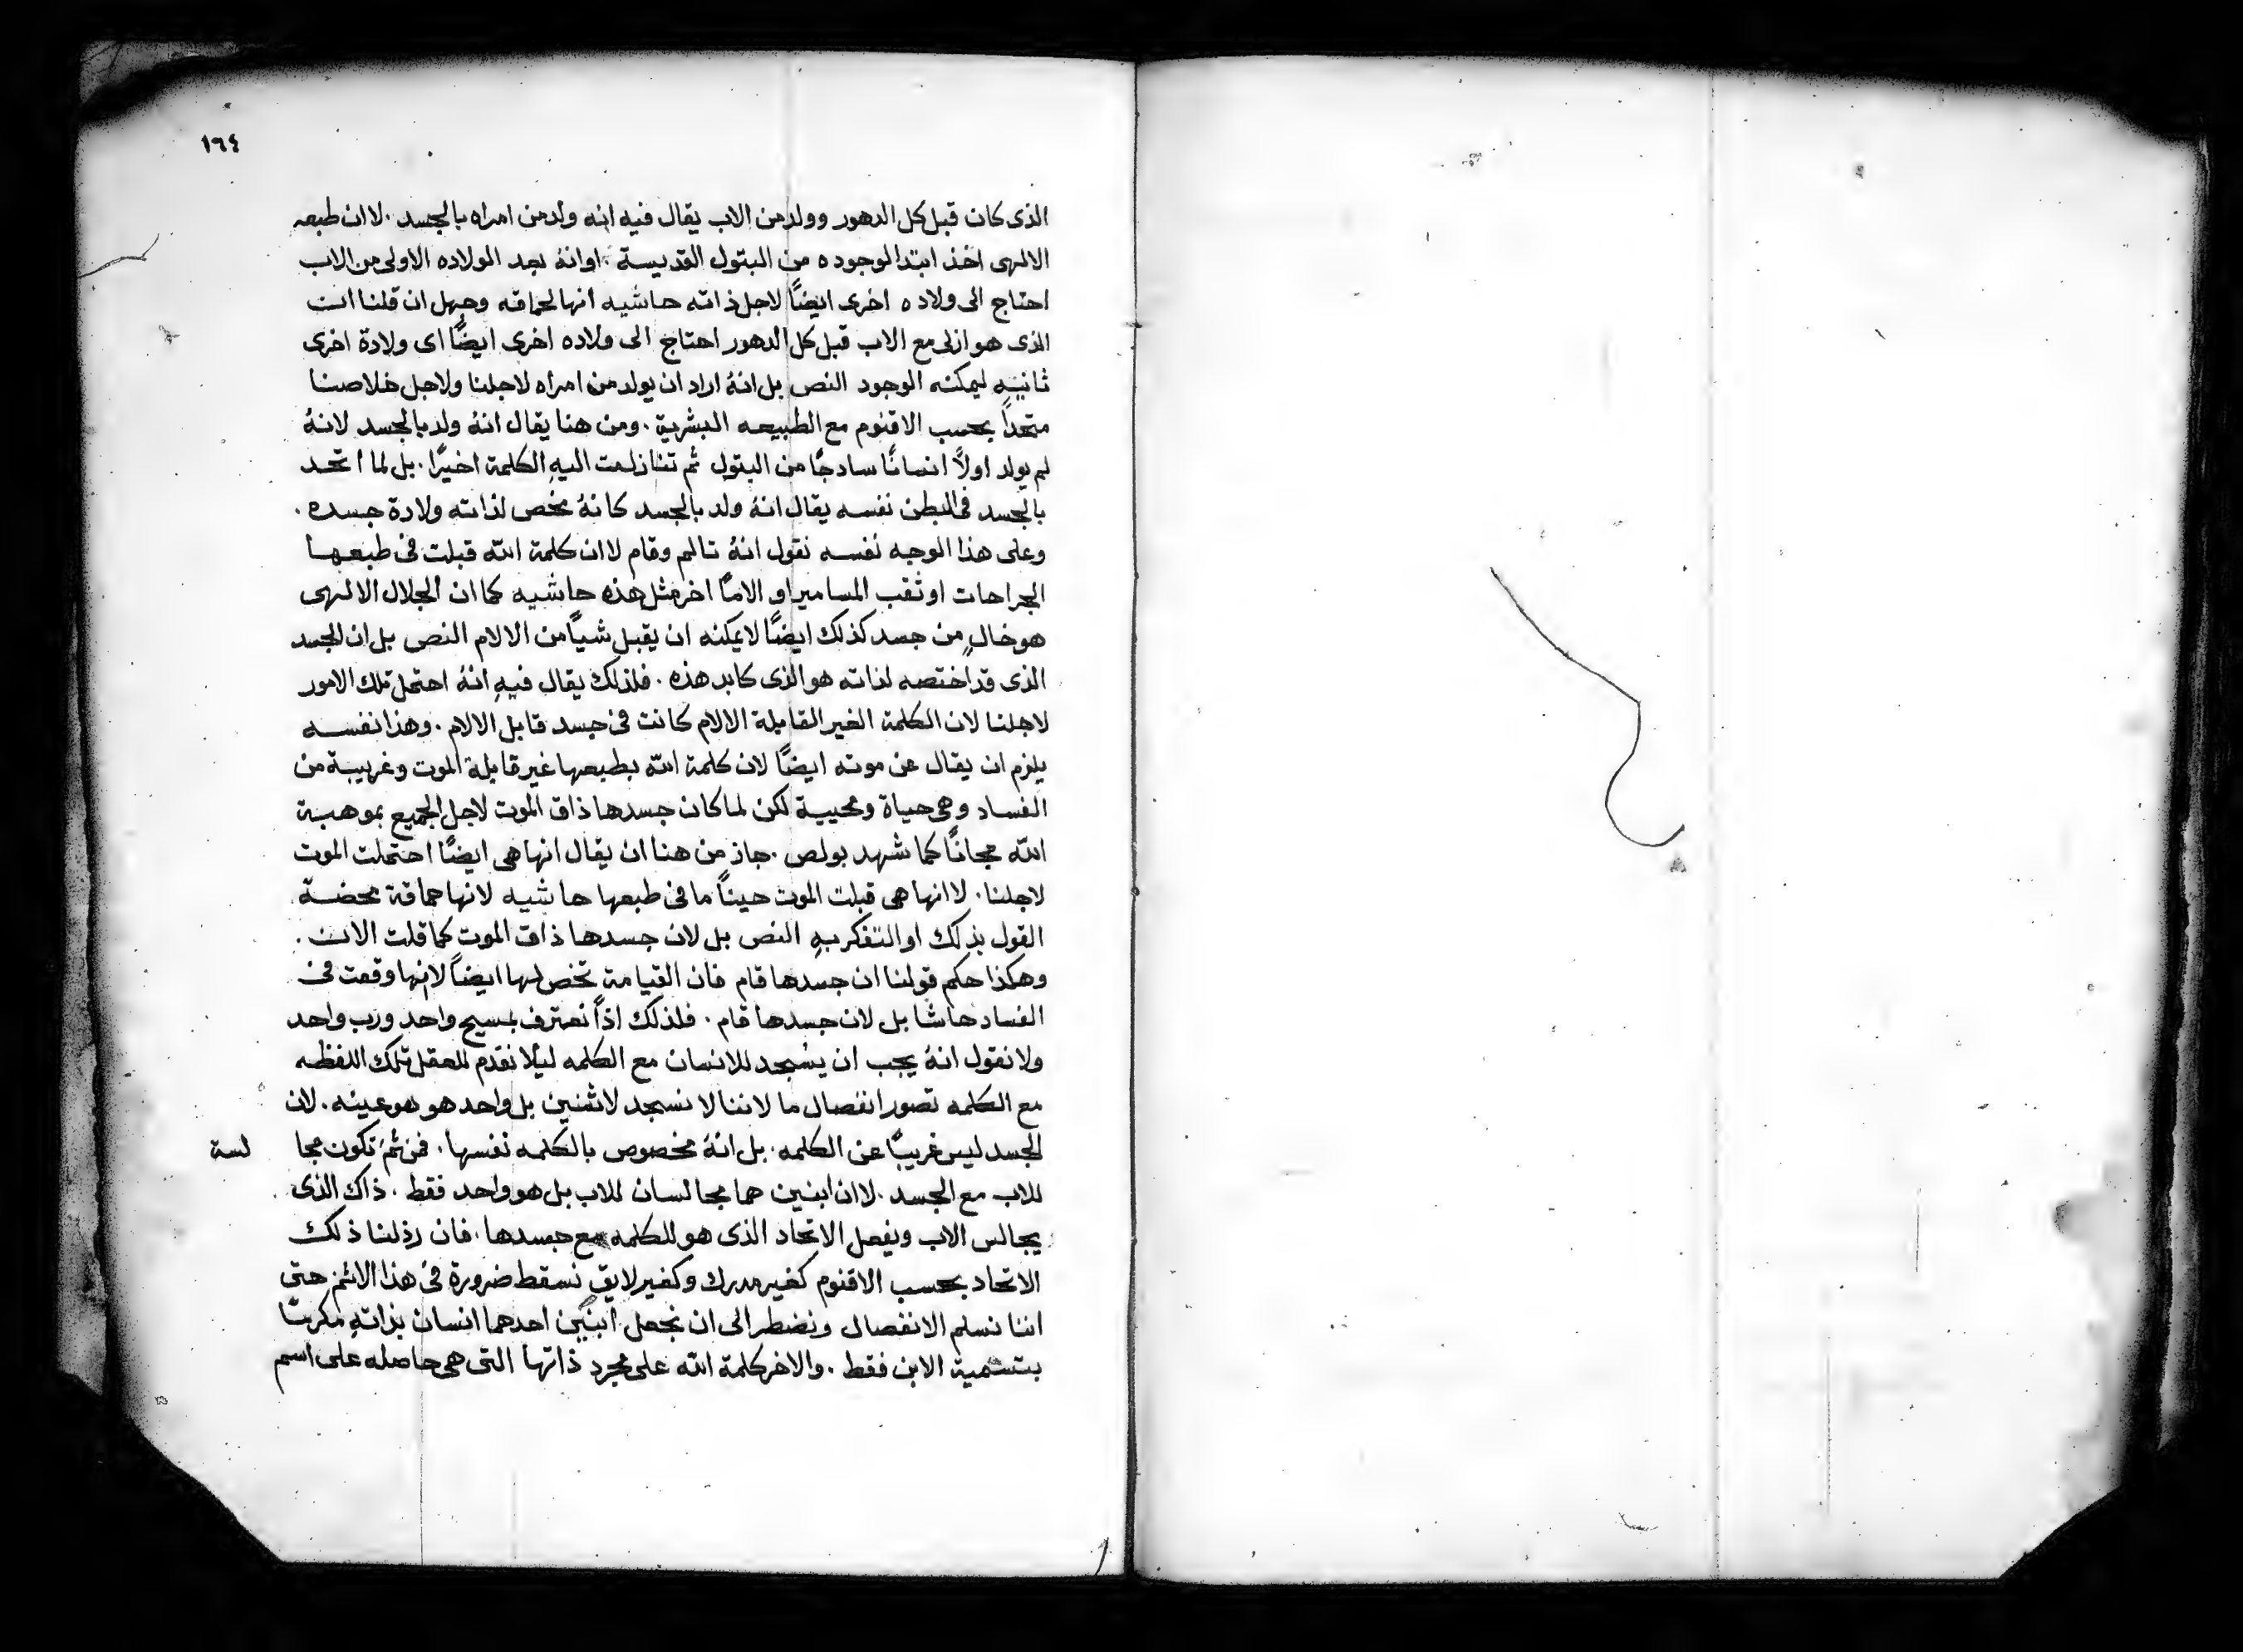 ١٦٤
الذى كان قبل كل الدهور وولد من الاب يقال فيه انه ولد من امراه بالجسد . لا ان طبعه
الالهى اخذ ابتدا لوجوده من البتول القديسة . او انهُ بعد الولاده الاولى من الاب
احتاج الى ولاده اخرى ايضًا لاجل ذاته حاشيه انها لحماقه وجهل ان قلنا ان
الذى هو ازلى مع الاب قبل كل الدهور احتاج الى ولاده اخرى ايضًا اى ولادة اخرى
ثانيه ليمكنه الوجود النص بل انهُ اراد ان يولد من امراه لاجلنا ولاجل خلاصنا
متحدًا بحسب الاقنوم مع الطبيعه البشرية . ومن هنا يقال انهُ ولد بالجسد لانهُ
لم يولد اولاً انسانًا سادجًا من البتول ثم تنازلت اليهِ الكلمة اخيرًا . بل لما اتحد
بالجسد فى البطن نفسه يقال انهُ ولد بالجسد كانهُ مخص لذاته ولادة جسده .
وعلى هذا الوجه نفسه نقول انهُ تالم وقام لا ان كلمة الله قبلت فى طبعها
الجراحات او ثقب المسامير او الامًا اخر مثل هذه حاشيه كما ان الجلال الالهى
هو خالٍ من جسد كذلك ايضًا لا يمكنه ان يقبل شيًا من الالام النص بل ان الجسد
الذى قد اختصه لذاته هو الذى كابد هذه . فلذلك يقال فيهِ انهُ احتمل تلك الامور
لاجلنا لان الكلمة الغير القابلة الالام كانت فى جسد قابل الالام . وهذا نفسه
يلزم ان يقال عن موته ايضًا لان كلمة الله بطبعها غير قابلة الموت وغريبة من
الفساد وهى حياة ومحيية لكن لما كان جسدها ذاق الموت لاجل الجميع بموهبة
الله مجانًا كما شهد بولص . جاز من هنا ان يقال انها هى ايضًا احتملت الموت
لاجلنا . لا انها هى قبلت الموت حينًا ما فى طبعها حاشيه لانها حماقة محضة
القول بذلك او التفكر بهِ النص بل لان جسدها ذاق الموت كما قلت الان .
وهكذا حكم قولنا ان جسدها قام فان القيامة تخص لها ايضًا لا انها وقعت فى
الفساد حاشا بل لان جسدها قام . فلذلك اذًا نعترف بمسيح واحد ورب واحد
ولا نقول انهُ يجب ان يسجد للانسان مع الكلمه ليلا نقدم للعقل تلك اللفظه
مع الكلمه تصور انفصال ما لاننا لا نسجد لاثنين بل واحد هو هو عينه . لان
الجسد ليس غريبًا عن الكلمه . بل انهُ مخصوص بالكلمه نفسها . فمن ثمَ تكون مجا لسة
للاب مع الجسد . لا ان ابنين هما مجالسان للاب بل هو واحد فقط . ذاك الذى
يجالس الاب ويفصل الاتحاد الذى هو للكلمه مع جسدها . فان رذلنا ذلك
الاتحاد بحسب الاقنوم كغير مدرك وكغير لايق نسقط ضرورة فى هذا الاثم حتى
اننا نسلم الانفصال ونضطر الى ان نجعل ابنين احدهما انسان بذاتهِ مكرمًا
بتسمية الابن فقط . والاخر كلمة الله على مجرد ذاتها التى هى حاصله على اسم